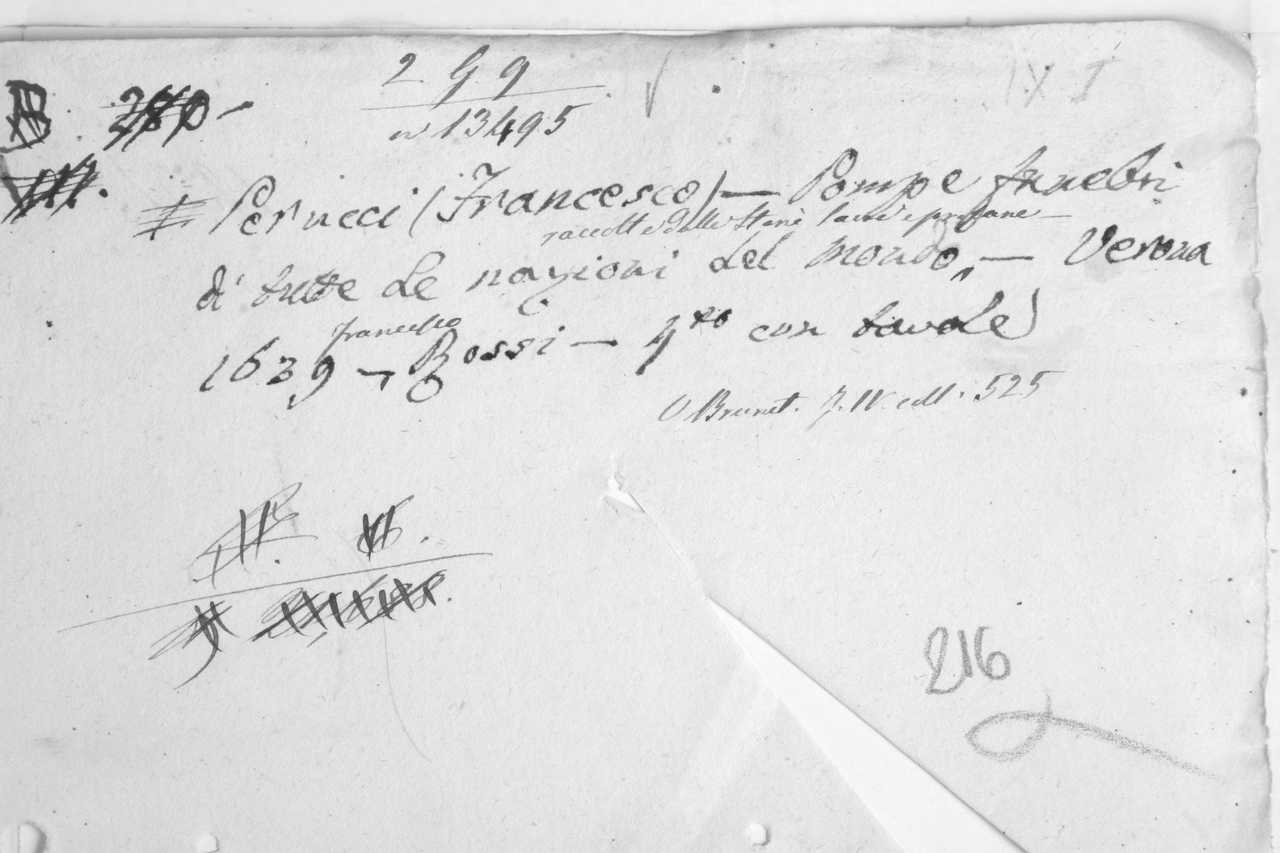 2 G 9
n° 13495
IX I
Perucci (Francesco) — Pompe funebri
raccolte dalle storie sacre e profane —
di tutte le nazioni del mondo, — Verona
francesco
1639 — Rossi — 4to con tavole
V. Brunet. T. IV. coll. 525
216